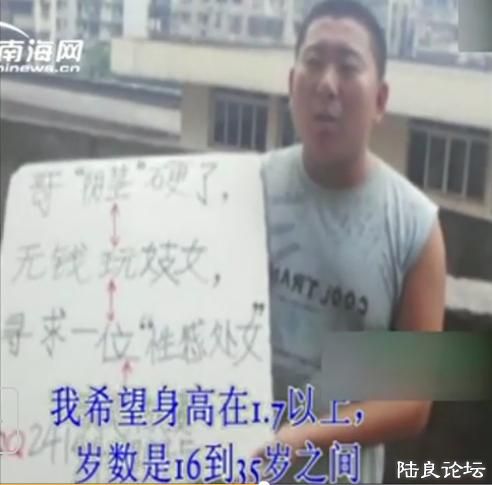 南海网
hinews.cn
哥"阴茎"硬了，
无钱玩妓女，
寻求一位"性感处女"
COOL TRAN
我希望身高在1.7以上，
岁数是16到35岁之间
陆良论坛